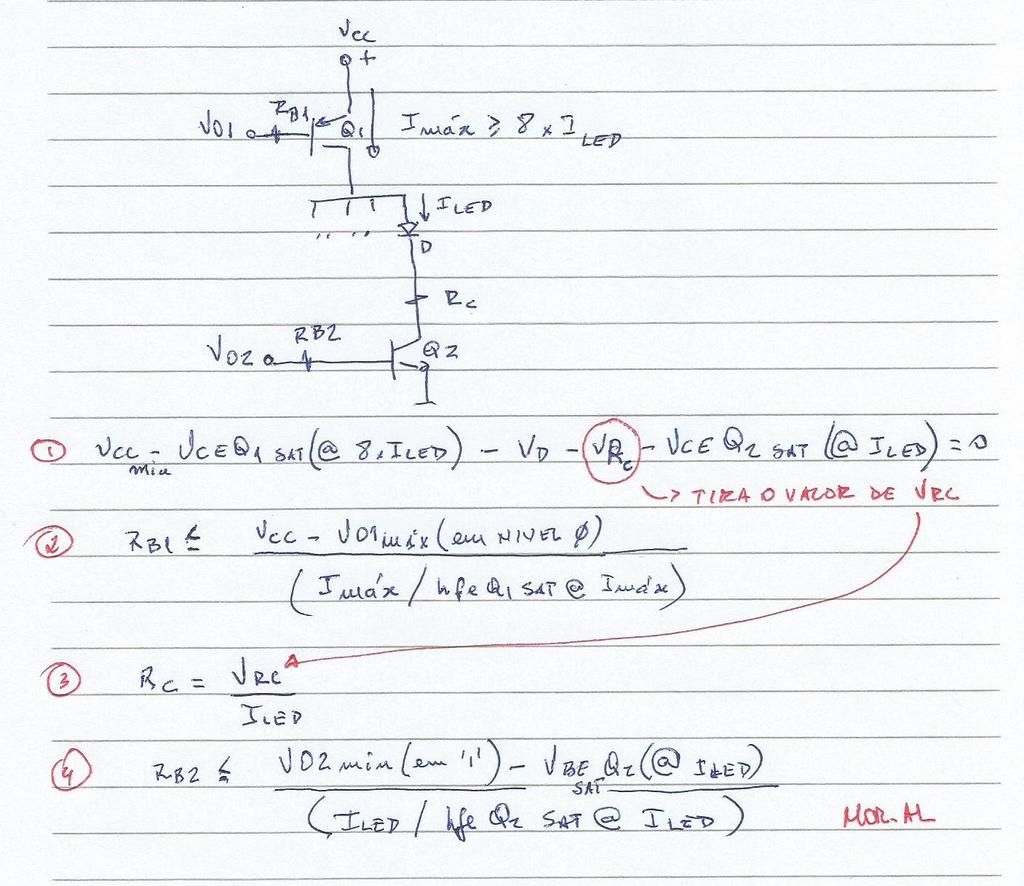 Vcc
+
VO1 RB1 Q1 Imáx ≥ 8 x I LED
I LED
D
Rc
RB2
VO2 Q2
① Vcc min - VCE Q1 SAT (@ 8 x ILED) - VD - VRc - VCE Q2 SAT (@ ILED) = 0
↳ TIRA O VALOR DE VRC
② RB1 ≤ Vcc - VO1 máx (em NIVEL 0)
(Imáx / hfe Q1 SAT @ Imáx)
③ Rc = VRC
ILED
④ RB2 ≤ VO2 min (em '1') - VBE SAT Q2 (@ ILED)
(ILED / hfe Q2 SAT @ ILED)
MOR_AL